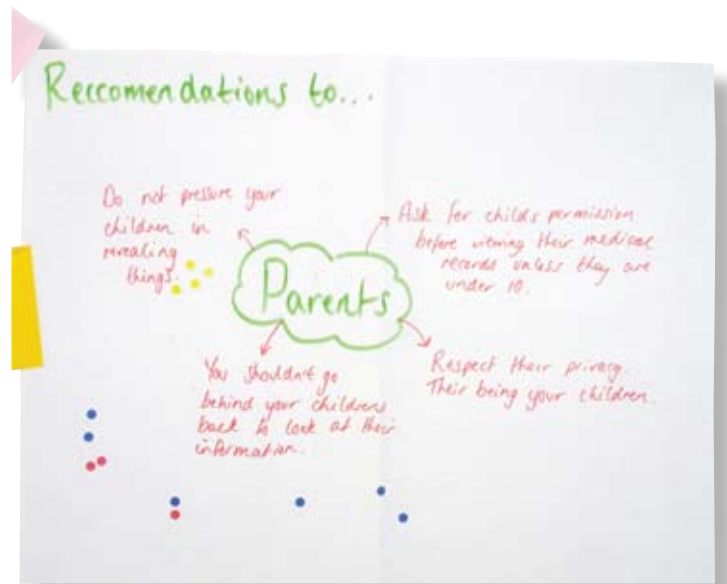 Reccomendations to...
Do not pressure your
children in
revealing
things.
Ask for childs permission
before viewing their medical
records unless they are
under 10.
Parents
You shouldn't go
behind your childrens
back to look at their
information.
Respect their privacy.
Their being your children.